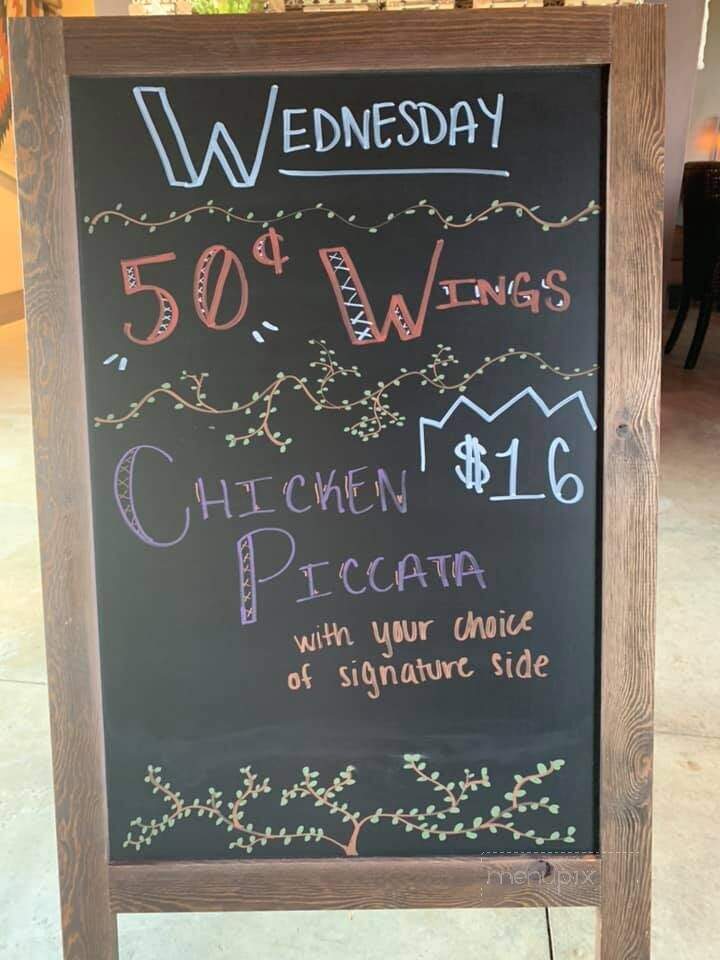 WEDNESDAY
50¢ WINGS
$16
CHICKEN
PICCATA
with your choice
of signature side
menupix